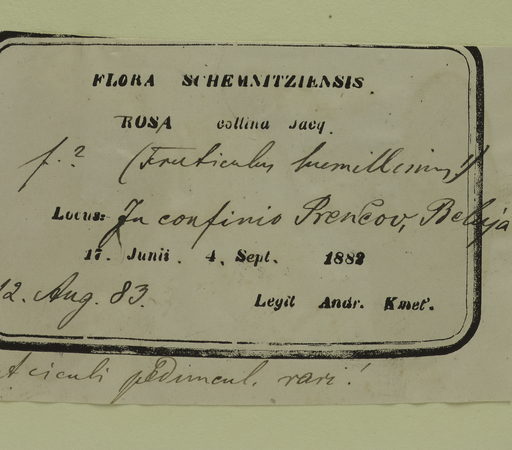 FLORA SCHEMNITZIENSIS.
ROSA collina Jacq.
f.? (Fruticulus humillimus!)
Locus: In confinio Prenčov, Beluja
17. Junii. 4. Sept. 1882
12. Aug. 83.
Legit Andr. Kmeť.
Aciculi peduncul. rari!